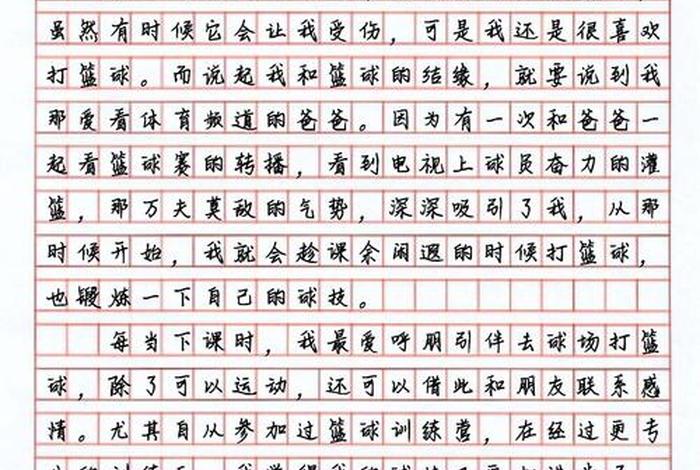 虽然有时候它会让我受伤，可是我还是很喜欢
打篮球。而说起我和篮球的结缘，就要说到我
那爱看体育频道的爸爸。因为有一次和爸爸一
起看篮球赛的转播，看到电视上球员奋力的灌
篮，那万夫莫敌的气势，深深吸引了我，从那
时候开始，我就会趁课余闲遐的时候打篮球，
也锻炼一下自己的球技。
每当下课时，我最爱呼朋引伴去球场打篮
球，除了可以运动，还可以借此和朋友联系感
情。尤其自从参加过篮球训练营，在经过更专